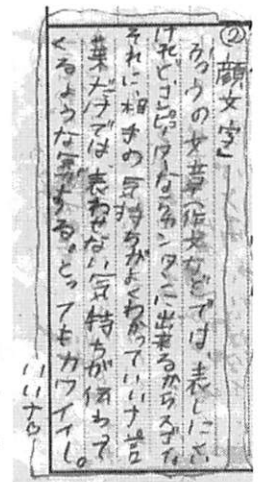 ②顔文字」
ふつうの文章(作文など)では、表しにくい
けれど、コンピュータなら カンタンに出来るからスゴイな
それに、相手の気持ちがよくわかっていいナ。言
葉だけでは表わせない気持ちが伝わって
くるような気がする。とってもカワイイし。
いいナ